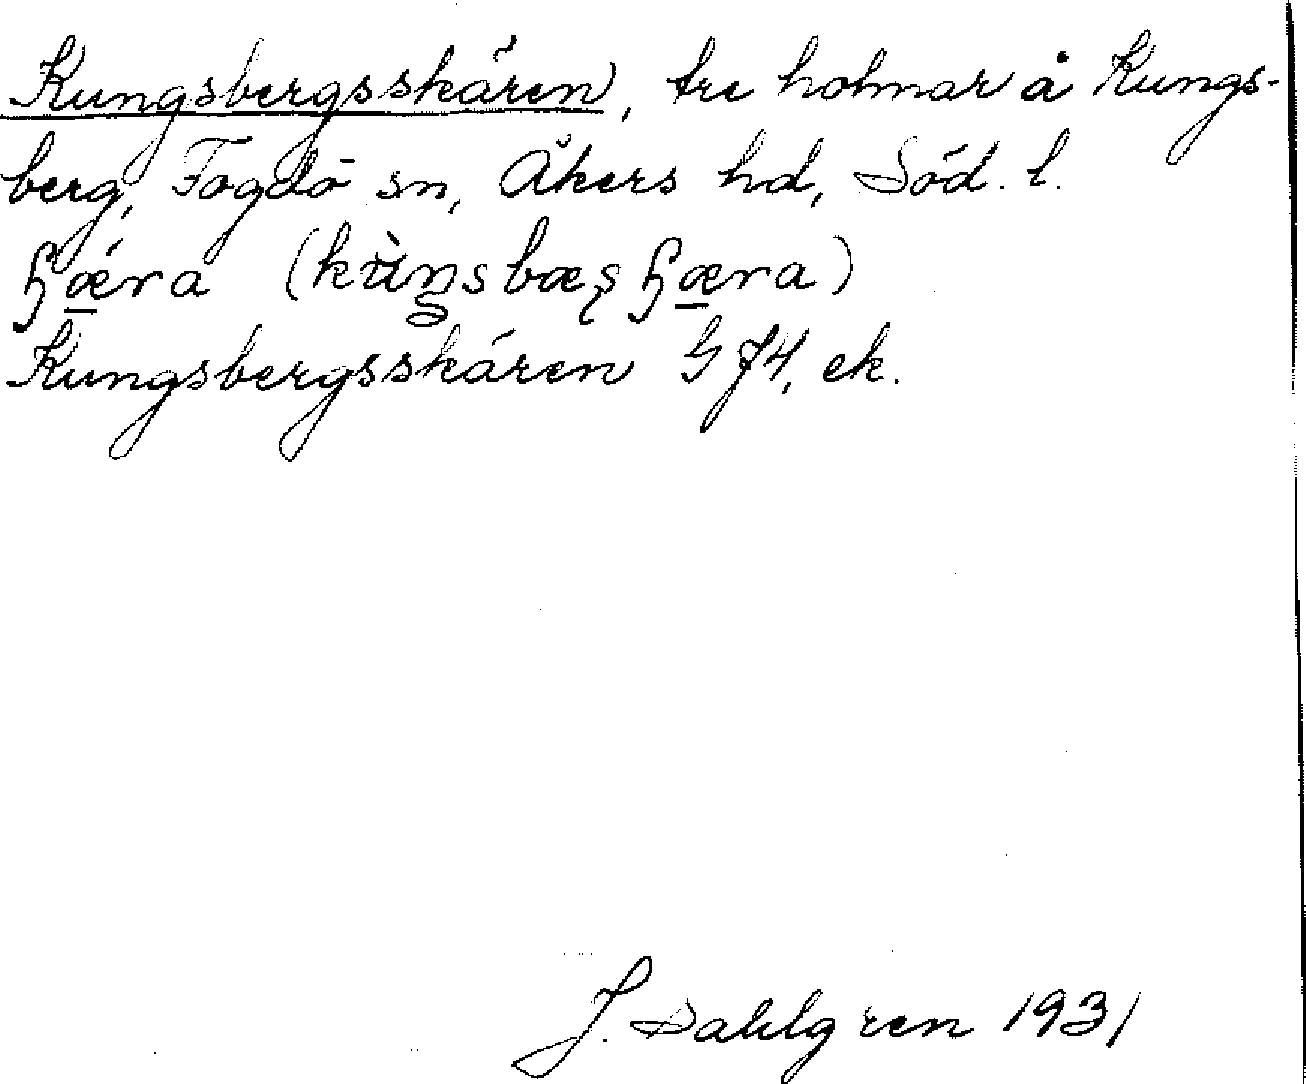 Kungsbergsskären, tre holmar å Kungs-
berg, Fogdö sn, Åkers hd, Söd. l.
ɧǽ̲ra (kùŋsbæʂɧæ̲ra)
Kungsbergsskären G 74, ek.
J. Dahlgren 1931